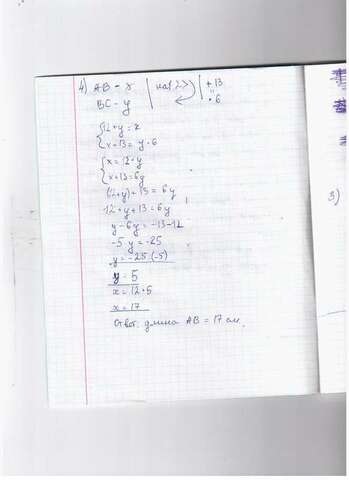 4) AB - x | на 12 > | + 13
BC - y | · 6
12 + y = x
x + 13 = y · 6
x = 12 + y
x + 13 = 6y
(12 + y) + 13 = 6y
12 + y + 13 = 6y
y - 6y = -13 - 12
-5y = -25
y = -25 : (-5)
y = 5
x = 12 + 5
x = 17
Ответ: длина AB = 17 см.
3)